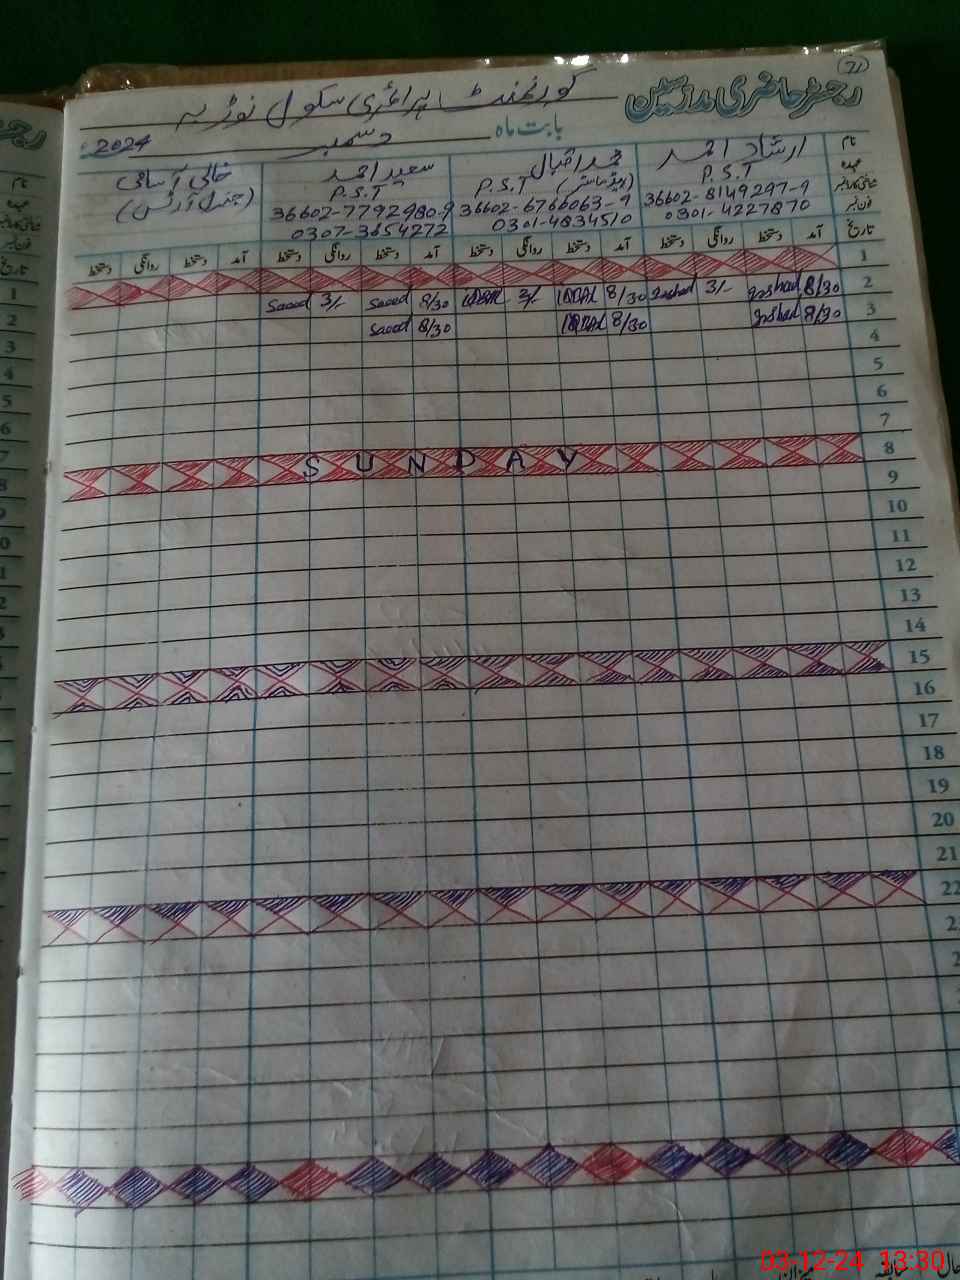 21
رجسٹر حاضری مدرسین
گورنمنٹ پرائمری سکول نوڑیہ
بابت ماہ دسمبر 2024ء
نام ارشاد احمد محمد اقبال سعید احمد خالی آسامی
عہدہ P.S.T P.S.T (ہیڈ ماسٹر) P.S.T (جنرل آرٹس)
36602-8149297-9 36602-6766063-9 36602-7792980-9
فون نمبر 0301-4227870 0301-4834510 0307-3654272
تاریخ آمد دستخط روانگی دستخط آمد دستخط روانگی دستخط آمد دستخط روانگی دستخط آمد دستخط روانگی دستخط
1
2 8/30 Irshad 3/- Irshad 8/30 IQBAL 3/- IQBAL 8/30 Saeed 3/- Saeed
3 8/30 Irshad 8/30 IQBAL 8/30 Saeed
4
5
6
7
8 SUNDAY
9
10
11
12
13
14
15
16
17
18
19
20
21
22
03-12-24 13:30